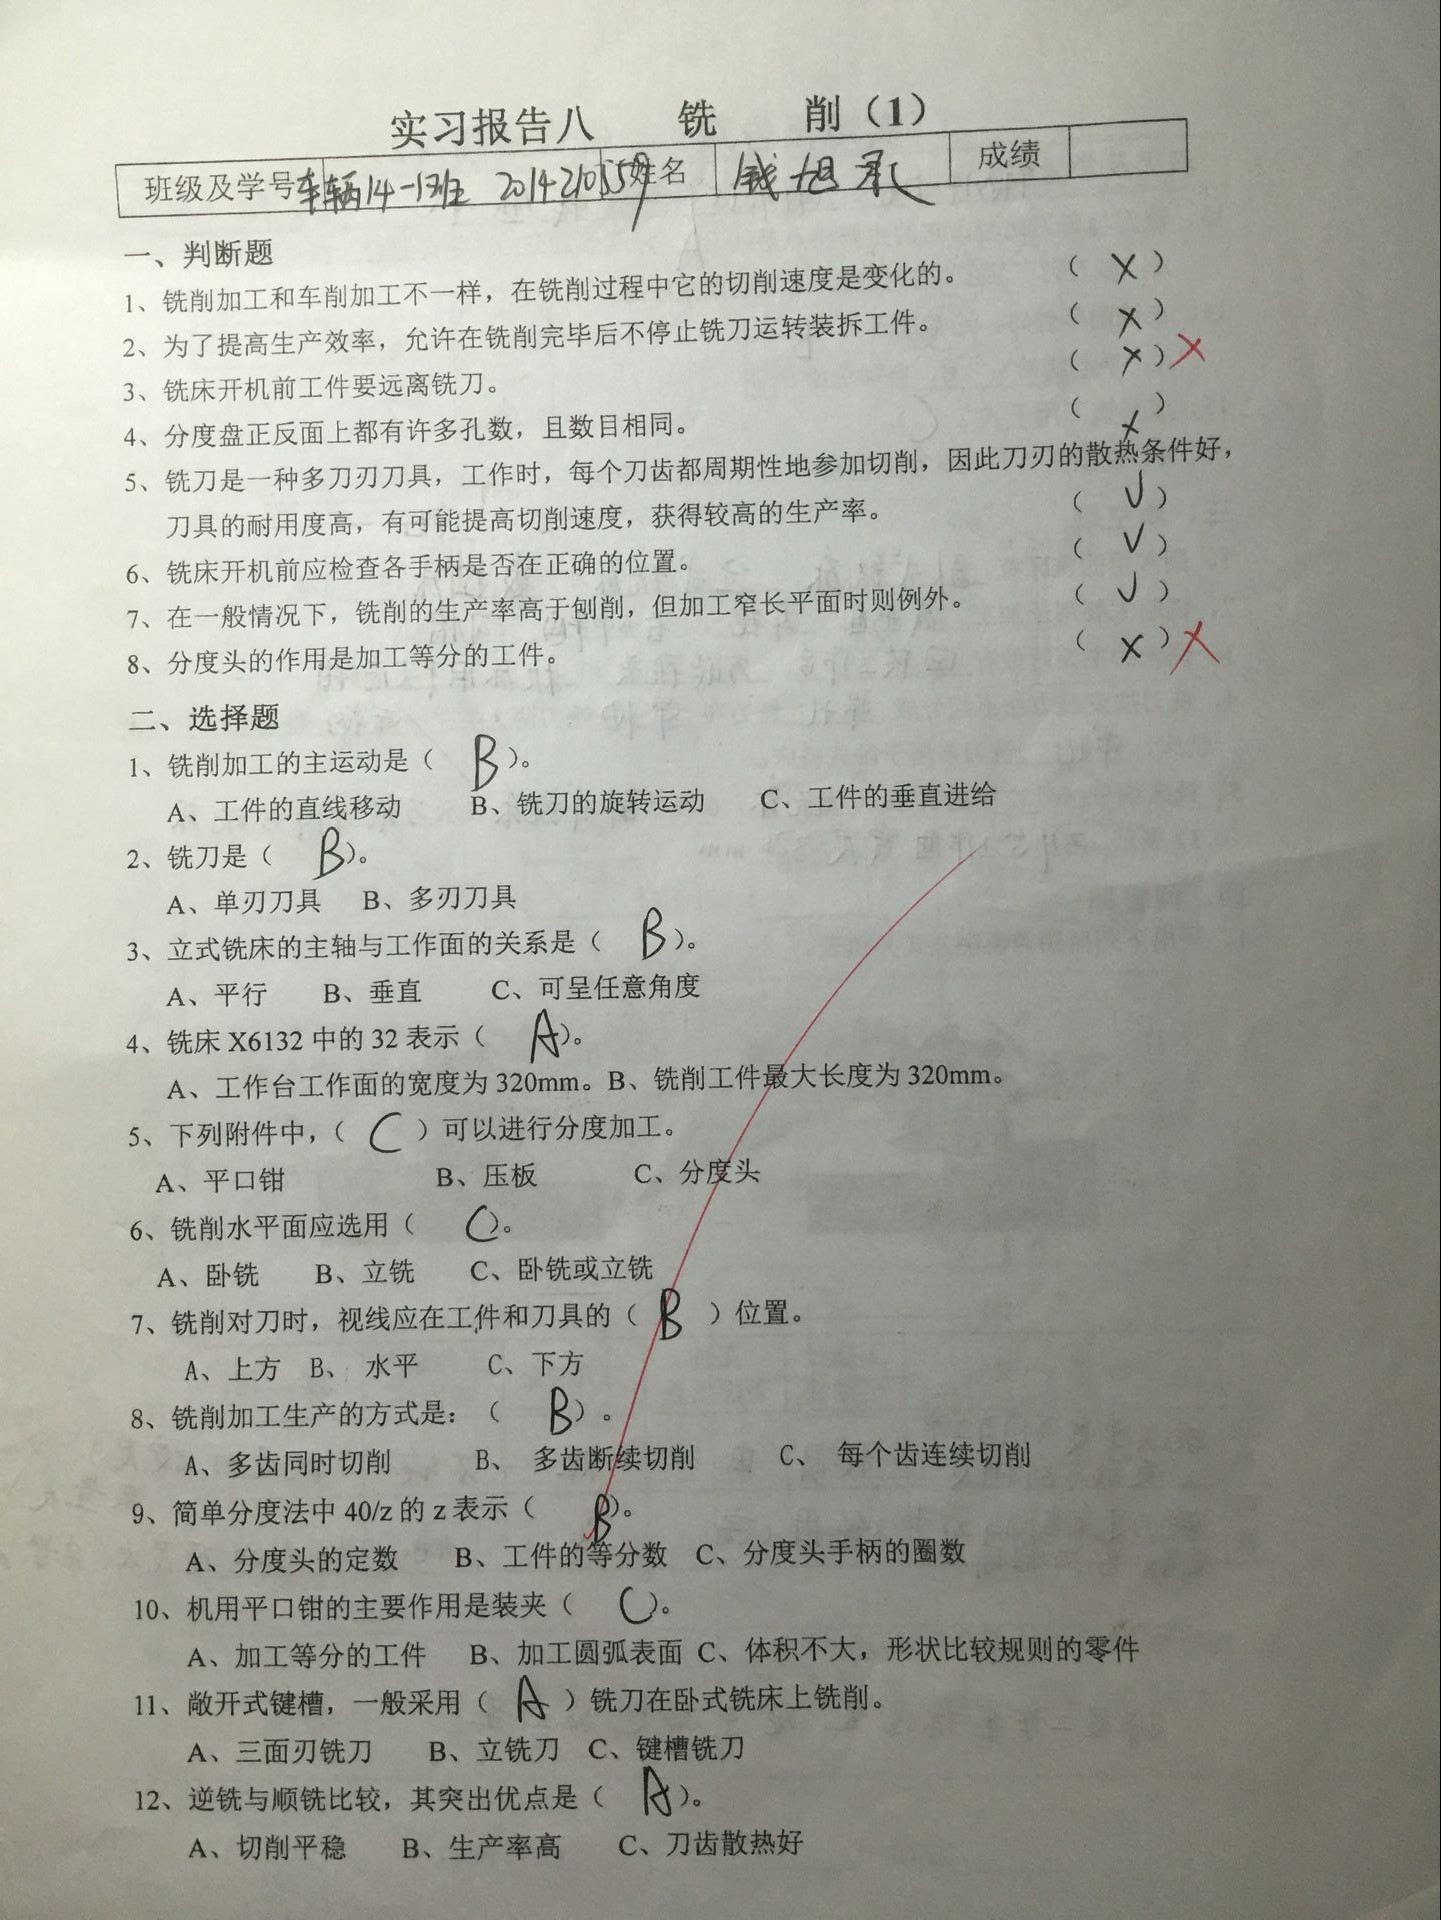 实习报告八 铣 削（1）
班级及学号 车辆14-1班 2014210559 姓名 钱旭承 成绩
一、判断题
1、铣削加工和车削加工不一样，在铣削过程中它的切削速度是变化的。 （ × ）
2、为了提高生产效率，允许在铣削完毕后不停止铣刀运转装拆工件。 （ × ）
3、铣床开机前工件要远离铣刀。 （ × ）×
4、分度盘正反面上都有许多孔数，且数目相同。 （ × ）
5、铣刀是一种多刀刃刀具，工作时，每个刀齿都周期性地参加切削，因此刀刃的散热条件好，
刀具的耐用度高，有可能提高切削速度，获得较高的生产率。 （ √ ）
6、铣床开机前应检查各手柄是否在正确的位置。 （ √ ）
7、在一般情况下，铣削的生产率高于刨削，但加工窄长平面时则例外。 （ √ ）
8、分度头的作用是加工等分的工件。 （ × ）×
二、选择题
1、铣削加工的主运动是（ B ）。
A、工件的直线移动 B、铣刀的旋转运动 C、工件的垂直进给
2、铣刀是（ B ）。
A、单刃刀具 B、多刃刀具
3、立式铣床的主轴与工作面的关系是（ B ）。
A、平行 B、垂直 C、可呈任意角度
4、铣床 X6132 中的 32 表示（ A ）。
A、工作台工作面的宽度为 320mm。B、铣削工件最大长度为 320mm。
5、下列附件中，（ C ）可以进行分度加工。
A、平口钳 B、压板 C、分度头
6、铣削水平面应选用（ C ）。
A、卧铣 B、立铣 C、卧铣或立铣
7、铣削对刀时，视线应在工件和刀具的（ B ）位置。
A、上方 B、 水平 C、下方
8、铣削加工生产的方式是：（ B ）。
A、多齿同时切削 B、 多齿断续切削 C、 每个齿连续切削
9、简单分度法中 40/z 的 z 表示（ B ）。
A、分度头的定数 B、工件的等分数 C、分度头手柄的圈数
10、机用平口钳的主要作用是装夹（ C ）。
A、加工等分的工件 B、加工圆弧表面 C、体积不大，形状比较规则的零件
11、敞开式键槽，一般采用（ A ）铣刀在卧式铣床上铣削。
A、三面刃铣刀 B、立铣刀 C、键槽铣刀
12、逆铣与顺铣比较，其突出优点是（ A ）。
A、切削平稳 B、生产率高 C、刀齿散热好